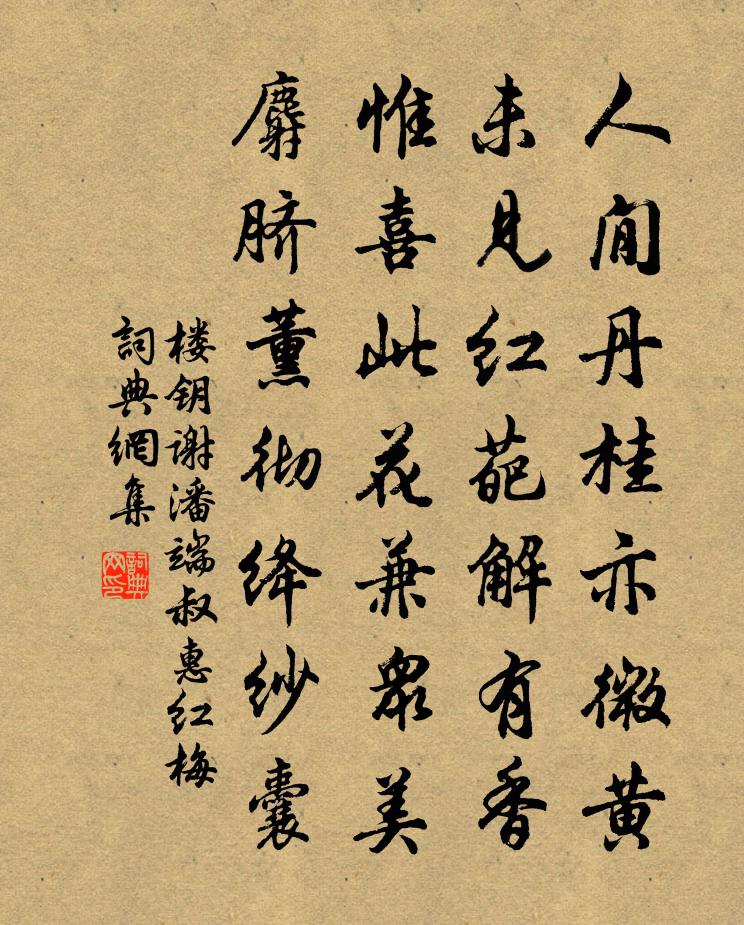 人间丹桂亦微黄
未见红葩解有香
惟喜此花兼众美
麝脐薰彻绛纱囊
楼钥谢潘端叔惠红梅
詞典網集
詞典网印